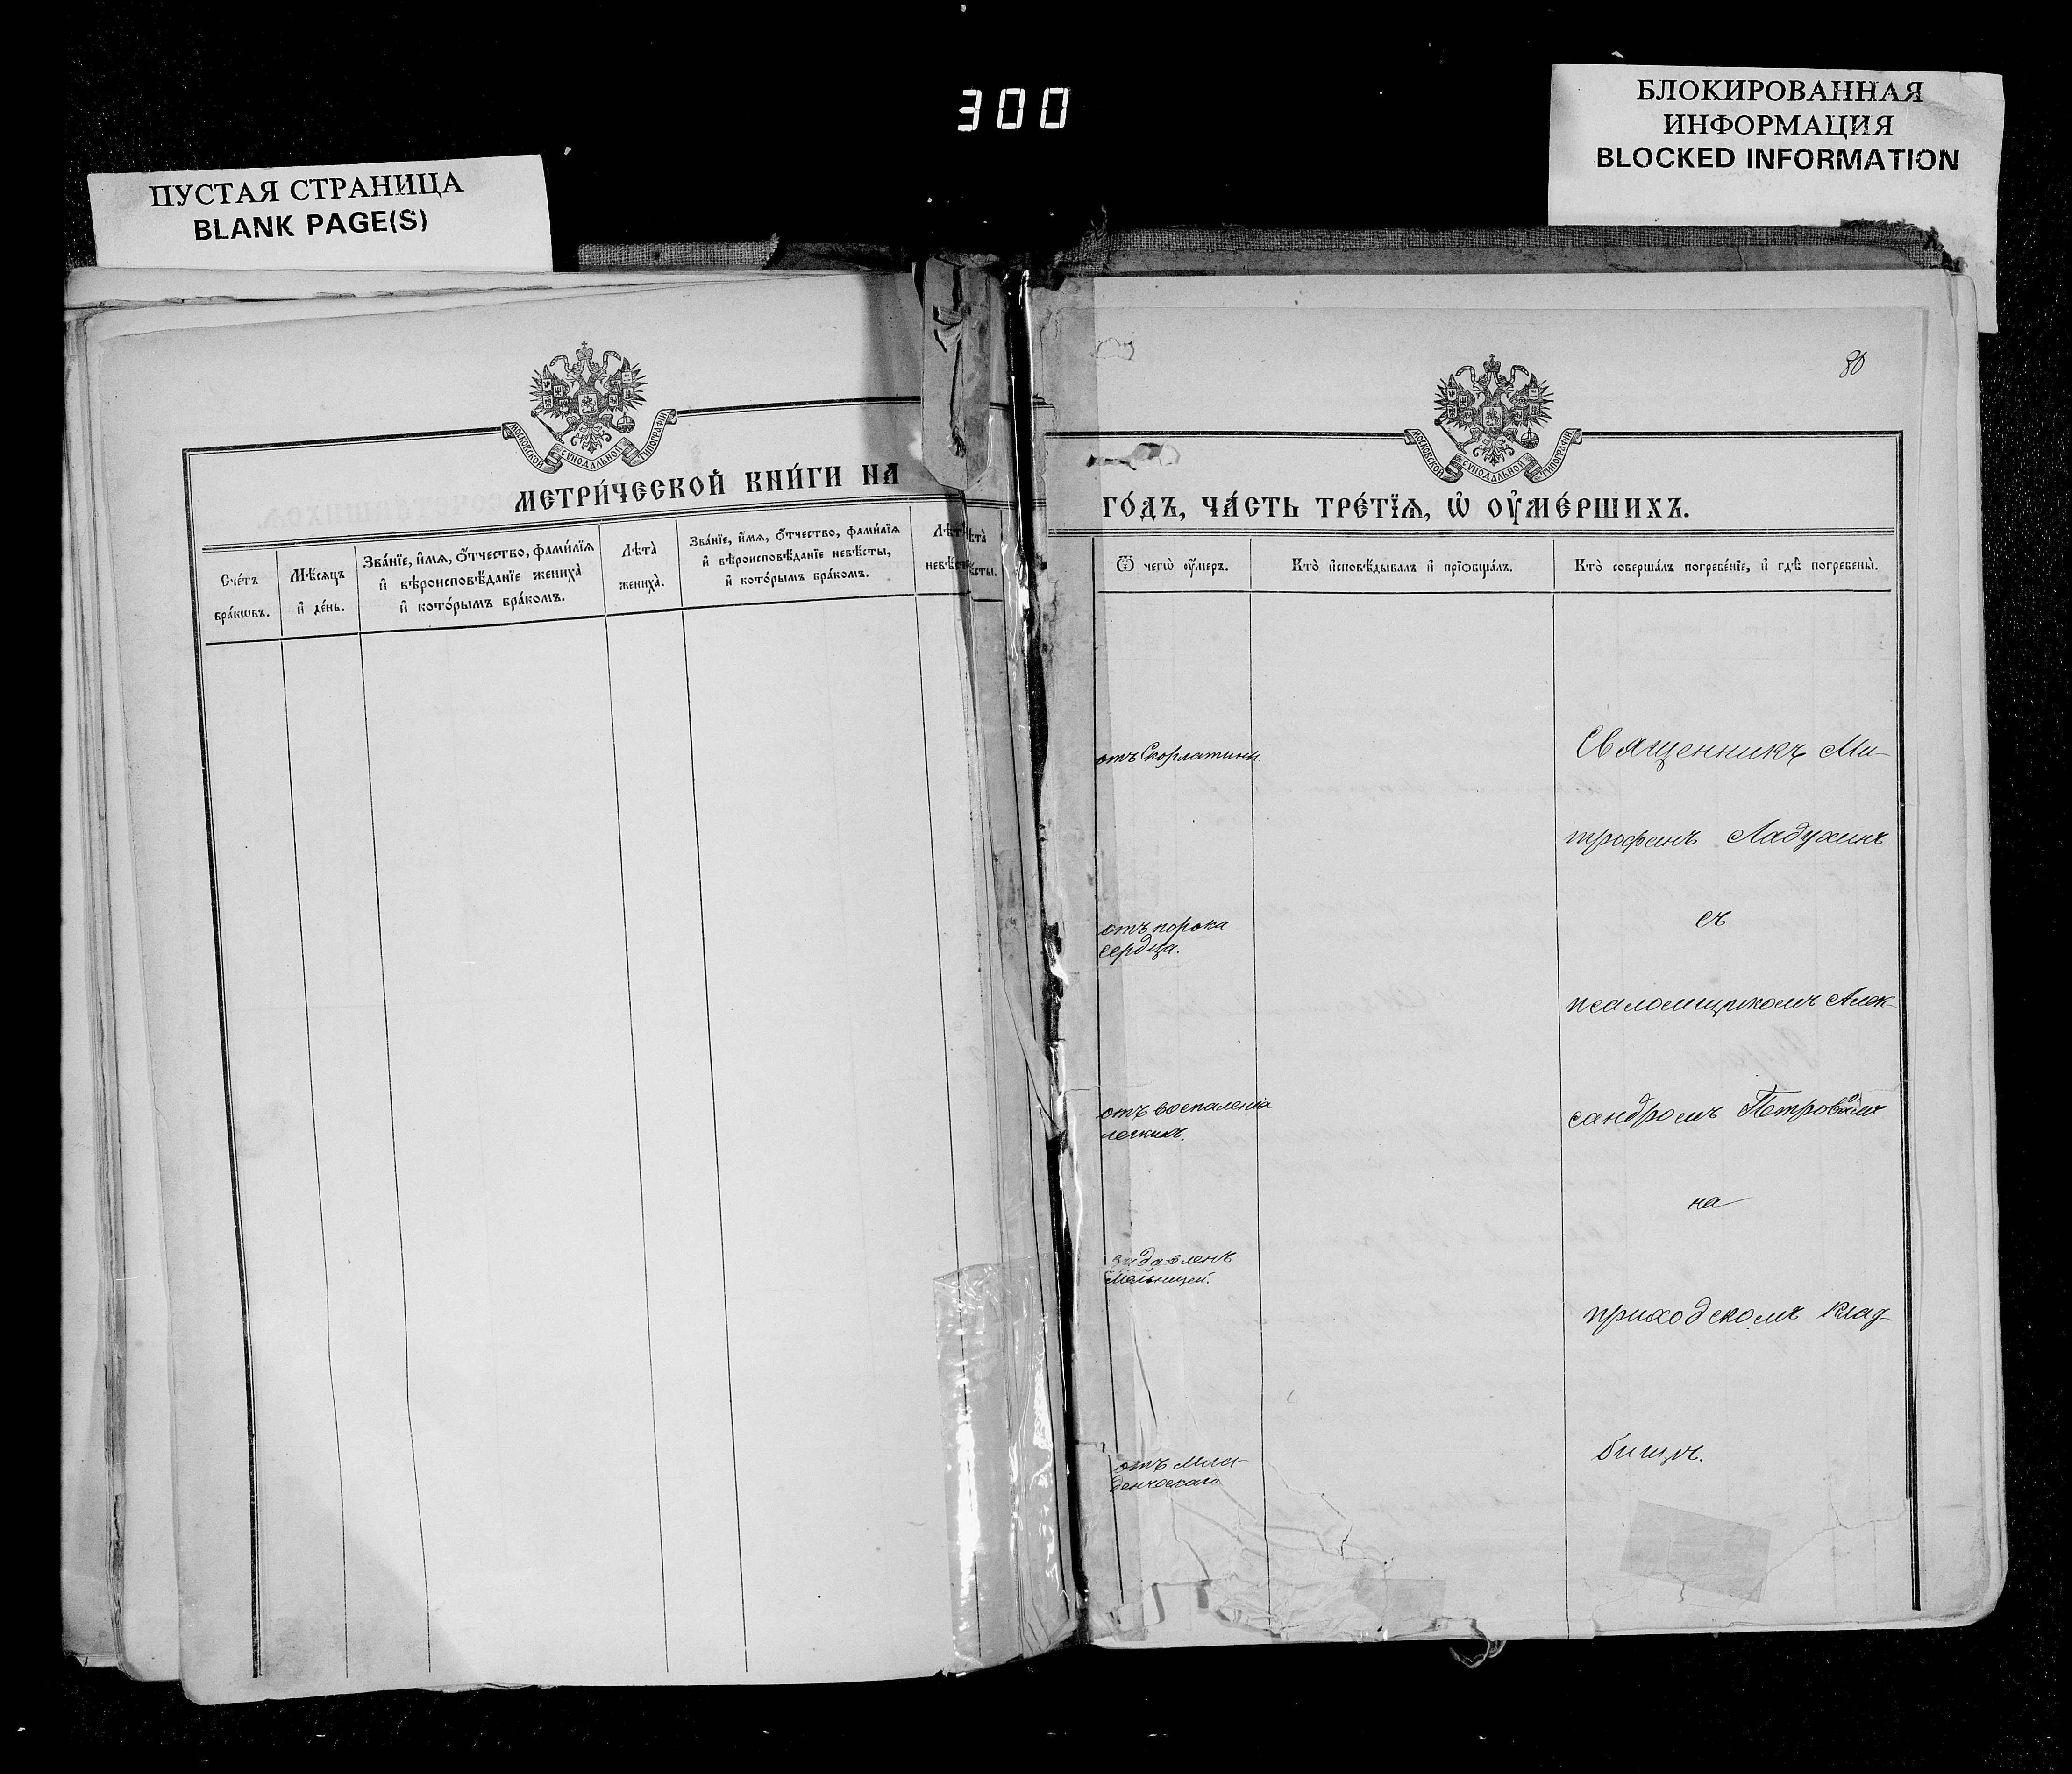 300
ПУСТАЯ СТРАНИЦА
BLANK PAGE(S)
БЛОКИРОВАННАЯ
ИНФОРМАЦИЯ
BLOCKED INFORMATION
МОСКОВСКОЙ СѴНОДАЛЬНОЙ ТИПОГРАФІИ
МЕТРИ́ЧЕСКОЙ КНИ́ГИ НА
Сче́тъ
бра́кωвъ.
Мѣ́сяцъ
и҆ де́нь.
Зва́нїе, и҆́мя, ѻ҆́тчество, фами́лїя
и҆ вѣроисповѣ́данїе жениха̀
и҆ кото́рымъ бра́комъ.
Лѣта̀
жениха̀.
Зва́нїе, и҆́мя, ѻ҆́тчество, фами́лїя
и҆ вѣроисповѣ́данїе невѣ́сты,
и҆ кото́рымъ бра́комъ.
80
МОСКОВСКОЙ СѴНОДАЛЬНОЙ ТИПОГРАФІИ
ГО́ДЪ, ЧА́СТЬ ТРЕ́ТЇѦ, Ѡ҆ ОУ҆МЕ́РШИХЪ.
Ѿ чегѡ̀ оу҆́меръ.
Кто̀ и҆сповѣ́дывалъ и҆ прїѡбща́лъ.
Кто̀ соверша́лъ погребе́нїе, и҆ гдѣ̀ погребены̀.
отъ Скорлатины.
Священникъ Ми-
трофанъ Ладухинъ
отъ порока
сердца.
съ
псаломщикомъ Алек-
отъ воспаленія
легкихъ.
сандромъ Петровымъ
на
задавленъ
мельницей.
приходскомъ клад-
бищѣ.
отъ Мла-
денческаго